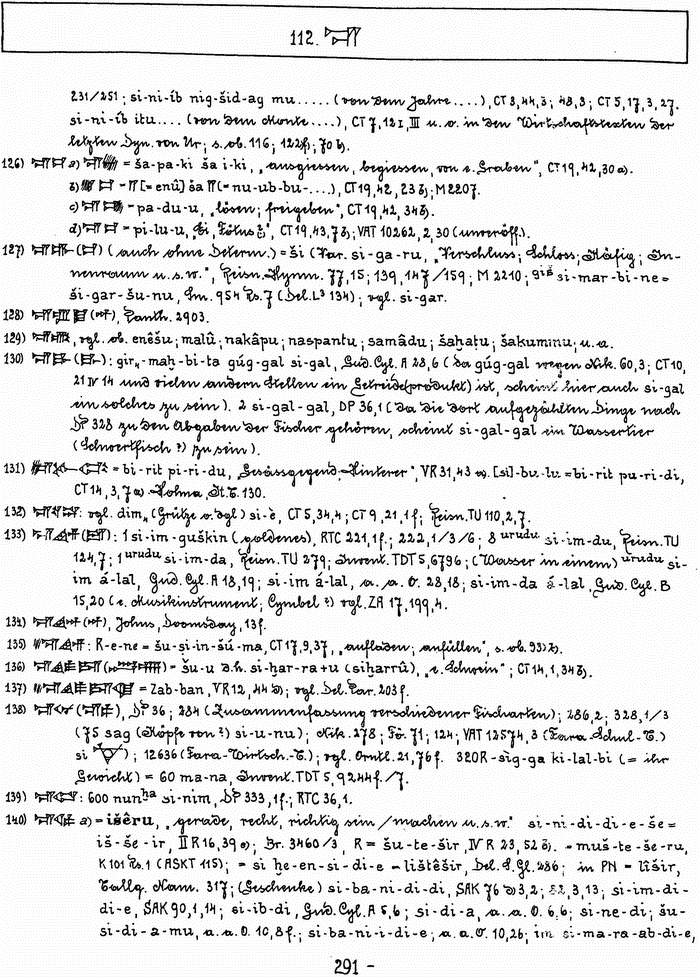 112. 𒋛
231/251; si-ni-íb nig-šid-ag mu ..... (von dem Jahre ....), CT 3,44,3; 48,3; CT 5,17,3,27.
si-ni-íb itu .... (von dem Monte ....), CT 7,12 I, III u. o. in den Wirtschaftstexten der
letzten Dyn. von Ur; s. ob. 116; 122f; 70 b).
126) a) = ša-pa-ki ša i-ki, „ausgiessen, begiessen, von e. Graben", CT 19,42,30 a).
b) = [= enû] ša (= nu-ub-bu-....), CT 19,42,23 b); M 2207.
c) = pa-du-u, „lösen; freigeben", CT 19,42,34 b).
d) = pi-lu-u, „Ei, Fötus", CT 19,43,7 b); VAT 10262,2,30 (unveröff.).
127) (auch ohne Determ.) = ši (Var. si-ga-ru, „Verschluss; Schloss; Käfig; In-
nenraum u.s.w.", Reisn. Hymn. 77,15; 139,147/159; M 2210; giš si-mar-bi-ne =
ši-gar-šu-nu, Sm. 954 Rs. 7 (Del. L³ 134); vgl. si-gar.
128) , Panth. 2903.
129) , vgl. ob. enêšu; malû; nakâpu; naspantu; samâdu; šaḫaṭu; šakuminu; u.a.
130) : gir₄-maḫ-bi-ta gúg-gal si-gal, Gud. Cyl. A 28,6 (da gúg-gal wegen Nik. 60,3; CT 10,
21 IV 14 und vielen andern Stellen ein Getreide(produkt) ist, scheint hier auch si-gal
ein solches zu sein). 2 si-gal-gal, DP 36,1 (da die dort aufgezählten Dinge nach
DP 328 zu den Abgaben der Fischer gehören, scheint si-gal-gal ein Wassertier
(Schwertfisch ?) zu sein).
131) = bi-rit pi-ri-du, „Gesässgegend; Hinterer", VR 31,43 a). [si]-bu-lu = bi-rit pu-ri-di,
CT 14,3,7 a). Holma, St. C. 130.
132) : vgl. dim₄ (Grütze o. dgl) si-è, CT 5,34,4; CT 9,21,1 f; Reisn. TU 110,2,7.
133) : 1 si-im-guškin (goldenes), RTC 221,1f.; 222,1/3/6; 8 urudu si-im-du, Reisn. TU
124,7; 1 urudu si-im-da, Reisn. TU 279; Invent. TDT 5,6796; (Wasser in einem) urudu si-
im á-lal, Gud. Cyl. A 18,19; si-im á-lal, a. a. O. 28,18; si-im-da á-lal, Gud. Cyl. B
15,20 (e. Musikinstrument; Cymbel ?) vgl. ZA 17,199,4.
134) , Johns, Doomsday, 13f.
135) : R-e-ne = šu-ṣi-in-šú-ma, CT 17,9,37, „aufladen; anfüllen", s. ob. 93 b).
136) = šu-u d.h. si-ḫar-ra+u (siḫarrû), „e. Schwein"; CT 14,1,34 b).
137) = zab-ban, VR 12,44 d); vgl. Del. Par. 203 f.
138) , DP 36; 284 (Zusammenfassung verschiedener Fischarten); 286,2; 328,1/3
(75 sag (Köpfe von ?) si-u-nu); Nik. 278; Fö. 71; 124; VAT 12574,3 (Fara Schul-T.)
si ; 12636 (Fara-Wirtsch.-T.); vgl. Orntl. 21,76 f. 320 R-sig-ga ki-lal-bi (= ihr
Gewicht) = 60 ma-na, Invent. TDT 5,9244 f./7.
139) : 600 nun ḫa si-nim, DP 333,1 f.; RTC 36,1.
140) a) = išêru, „gerade, recht, richtig sein/machen u.s.w." si-ni-di-di-e-še =
iš-še-ir, II R 16,39 a); Br. 3460/3, R = šu-te-šir, IV R 23,52 b). = muš-te-še-ru,
K 101 Rs. 1 (ASKT 115); = si ḫe-en-si-di-e = lištêšir, Del. S. Gl. 286; in PN = lîšir,
Tallq. Nam. 317; (Geschenke) si-ba-ni-di-di, SAK 76 d) 3,2; 52,3,13; si-im-di-
di-e, SAK 90,1,14; si-ib-di, Gud. Cyl. A 5,6; si-di-a, a. a. O. 6,6; si-ne-di; šu-
si-di-a-mu, a. a. O. 10,8 f.; si-ba-ni-i-di-e; a. a. O. 10,26; im si-ma-ra-ab-di-e,
291 -